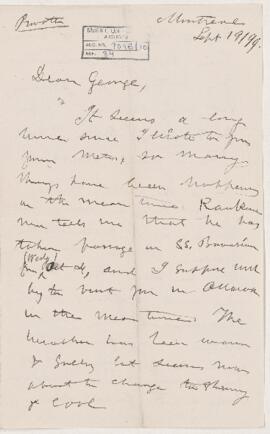 Private
Montreal
Sept 19/99.
Dear George,
It seems a long
time since I wrote to you
from Metis, so many
things have been happening
in the mean time.
now tells me that he has
taken passage in SS. Bavarian
and I suppose will
try to visit you in Ottawa
in the mean time. The
weather has been warm
& but seems now
about to change to
& cool